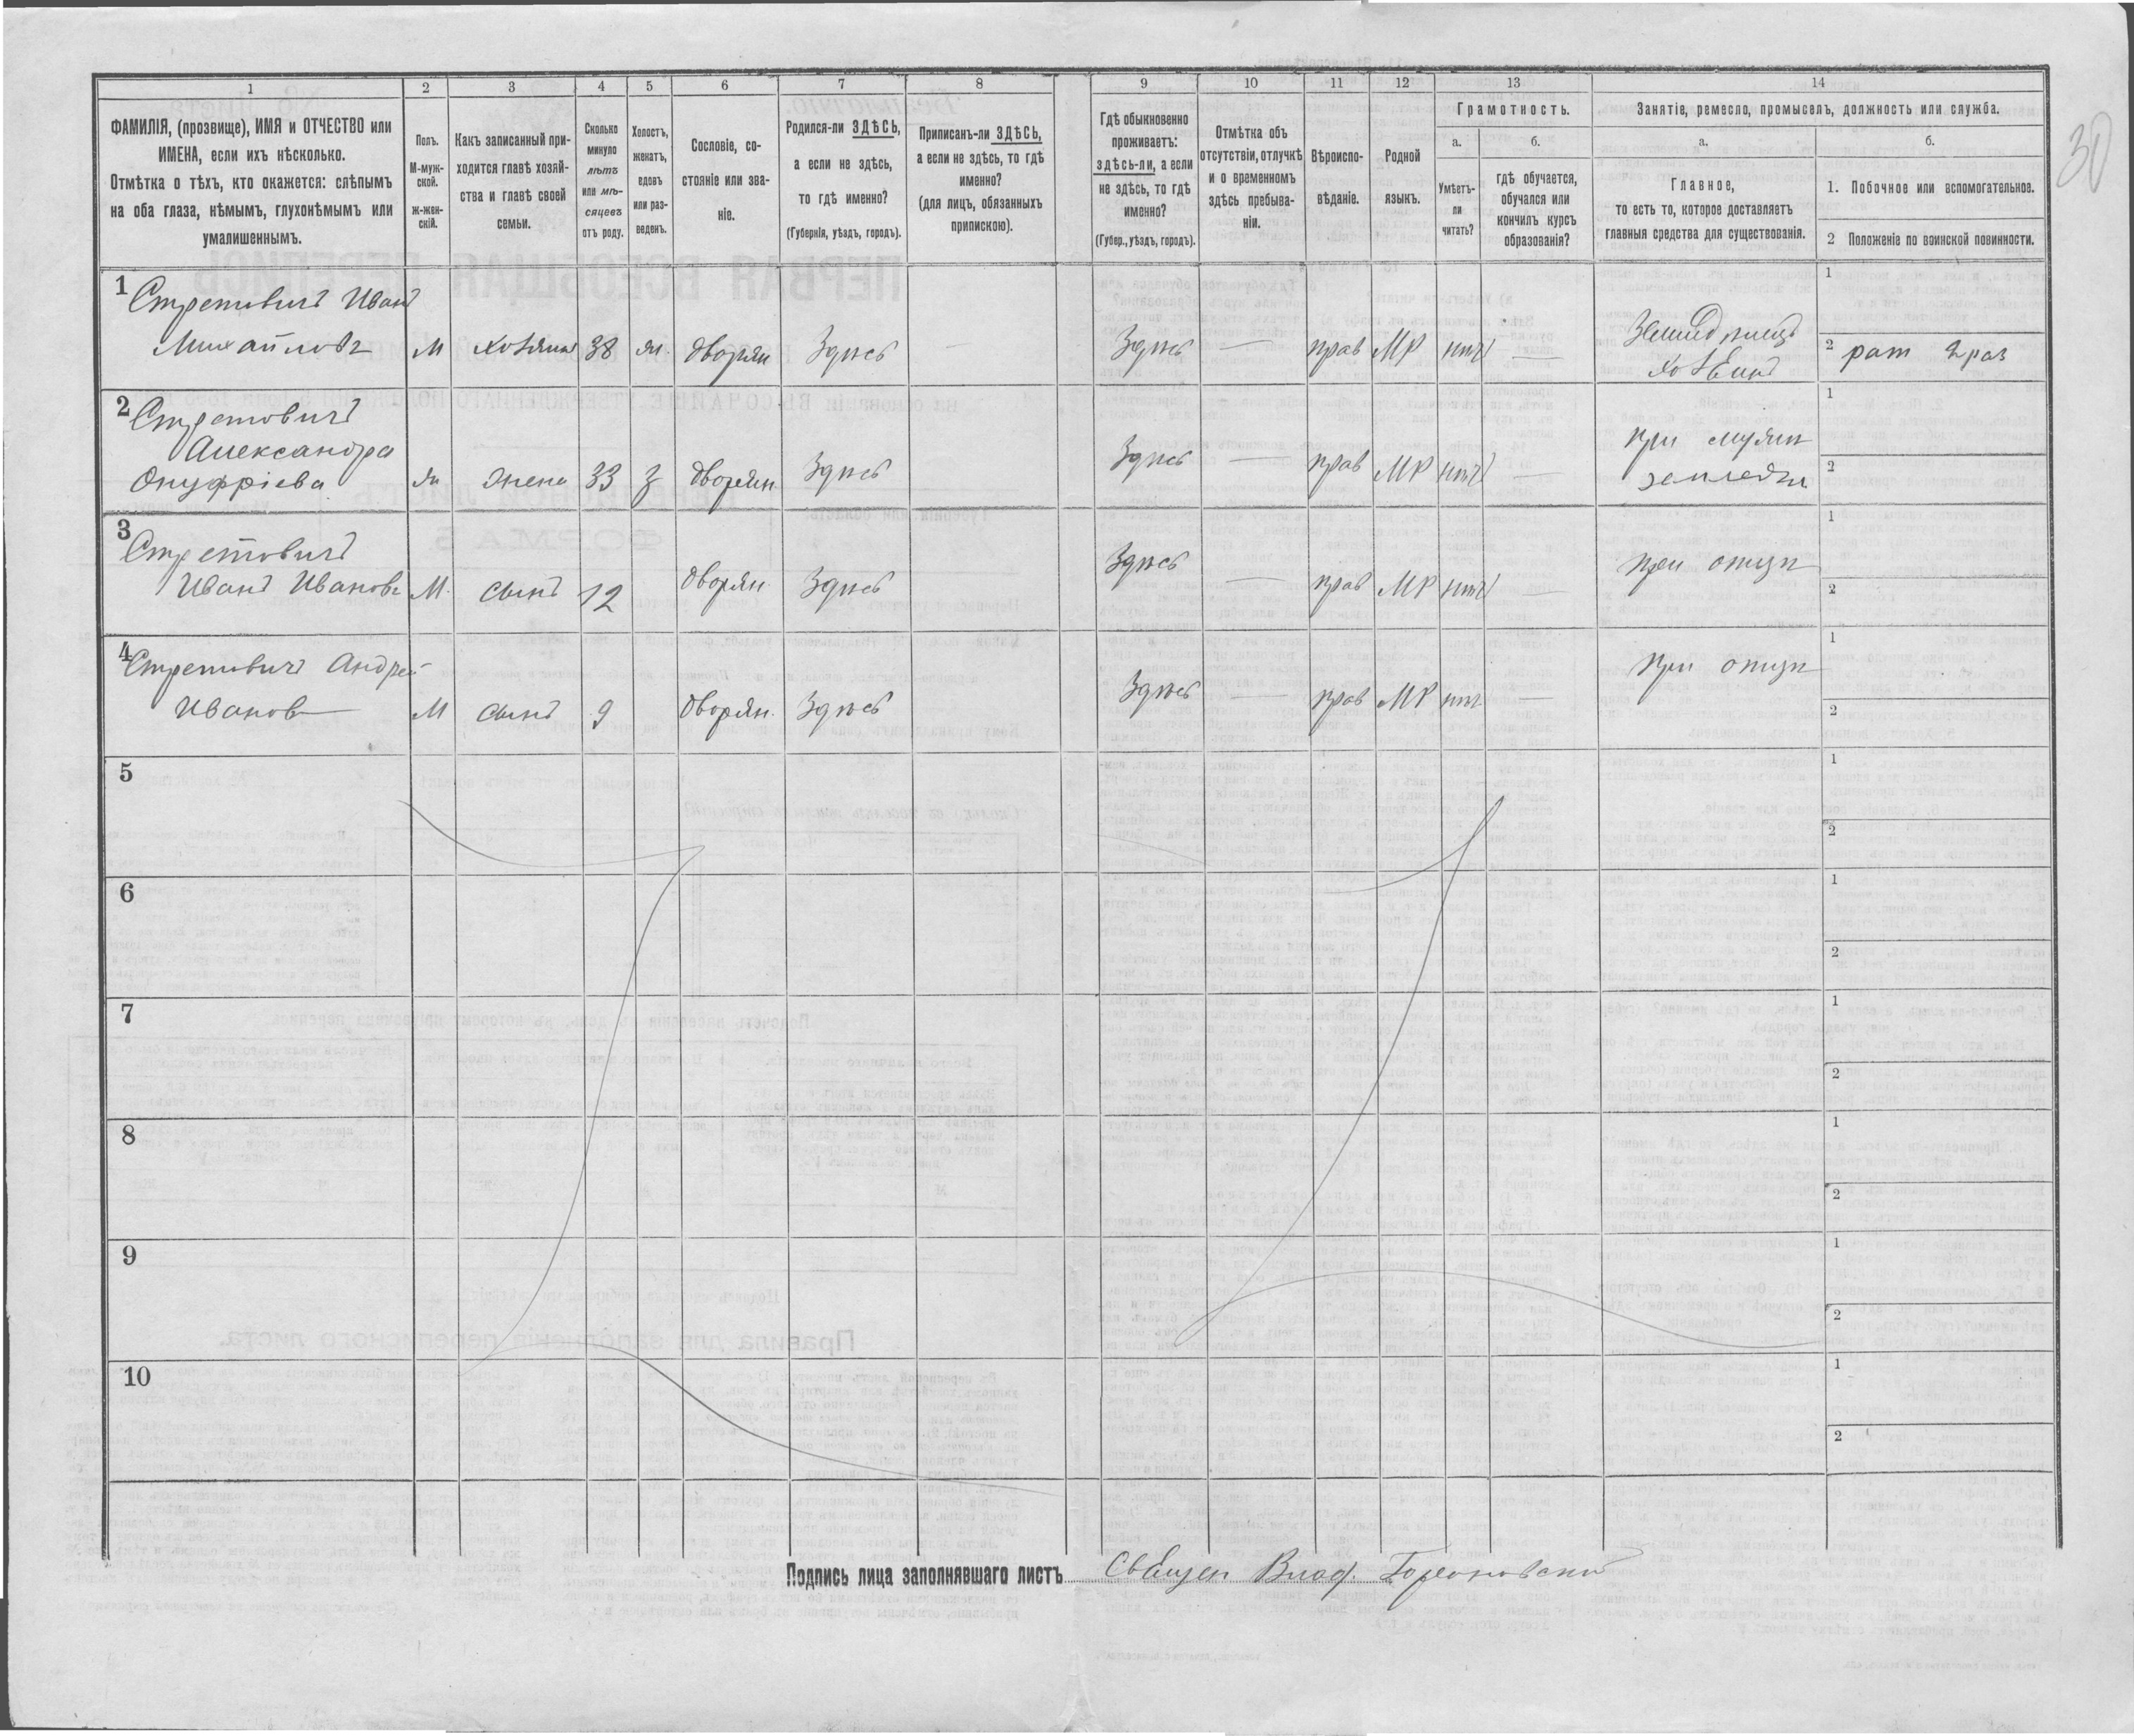 30
1 2 3 4 5 6 7 8 9 10 11 12 13 14
ФАМИЛІЯ, (прозвище), ИМЯ и ОТЧЕСТВО или
ИМЕНА, если ихъ нѣсколько.
Отмѣтка о тѣхъ, кто окажется: слѣпымъ
на оба глаза, нѣмымъ, глухонѣмымъ или
умалишеннымъ.
Полъ.
М-муж-
ской.
ж-жен-
скій.
Какъ записанный при-
ходится главѣ хозяй-
ства и главѣ своей
семьи.
Сколько
минуло
лѣтъ
или мѣ-
сяцевъ
отъ роду.
Холостъ,
женатъ,
вдовъ
или раз-
веденъ.
Сословіе, со-
стояніе или зва-
ніе.
Родился-ли ЗДѢСЬ,
а если не здѣсь,
то гдѣ именно?
(Губернія, уѣздъ, городъ).
Приписанъ-ли ЗДѢСЬ,
а если не здѣсь, то гдѣ
именно?
(для лицъ, обязанныхъ
припискою).
Гдѣ обыкновенно
проживаетъ:
здѣсь-ли, а если
не здѣсь, то гдѣ
именно?
(Губер., уѣздъ, городъ).
Отмѣтка объ
отсутствіи, отлучкѣ
и о временномъ
здѣсь пребыва-
ніи.
Вѣроиспо-
вѣданіе.
Родной
языкъ.
Грамотность.
а.
Умѣетъ-
ли
читать?
б.
гдѣ обучается,
обучался или
кончилъ курсъ
образованія?
Занятіе, ремесло, промыселъ, должность или служба.
а.
Главное,
то есть то, которое доставляетъ
главныя средства для существованія.
б.
1. Побочное или вспомогательное.
2 Положеніе по воинской повинности.
1 Стретовичъ Иванъ
Михайловъ М хозяинъ 38 ж. дворян Здѣсь Здѣсь — прав МР нѣтъ —
хозяинъ
1
2 рат 2 раз
2 Стретовичъ
Александра
Онуфріева ж жена 33 з дворян Здѣсь Здѣсь — прав МР нѣтъ —
при мужѣ
1
2
3 Стретовичъ
Иванъ Ивановъ М. сынъ 12 дворян Здѣсь Здѣсь — прав МР нѣтъ — при отцѣ
1
2
4 Стретовичъ Андрей
Иванов М сынъ 9 дворян. Здѣсь Здѣсь — прав МР нѣтъ — при отцѣ
1
2
5
1
2
6
1
2
7
1
2
8
1
2
9
1
2
10
1
2
Подпись лица заполнявшаго листъ Священ Влад.